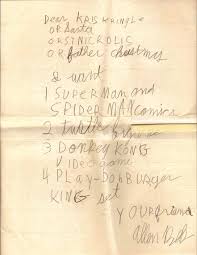 Dear KRIS KRINGLE
OR Santa
OR STNICROLIC
OR father chistmas
I want
1 SUPERMAN and
SPIDERMAN comics
2 turtle
3 Donkey KONG
Video game
4 PLAY-DOH BURGER
KING set
YOUR friend
Allen